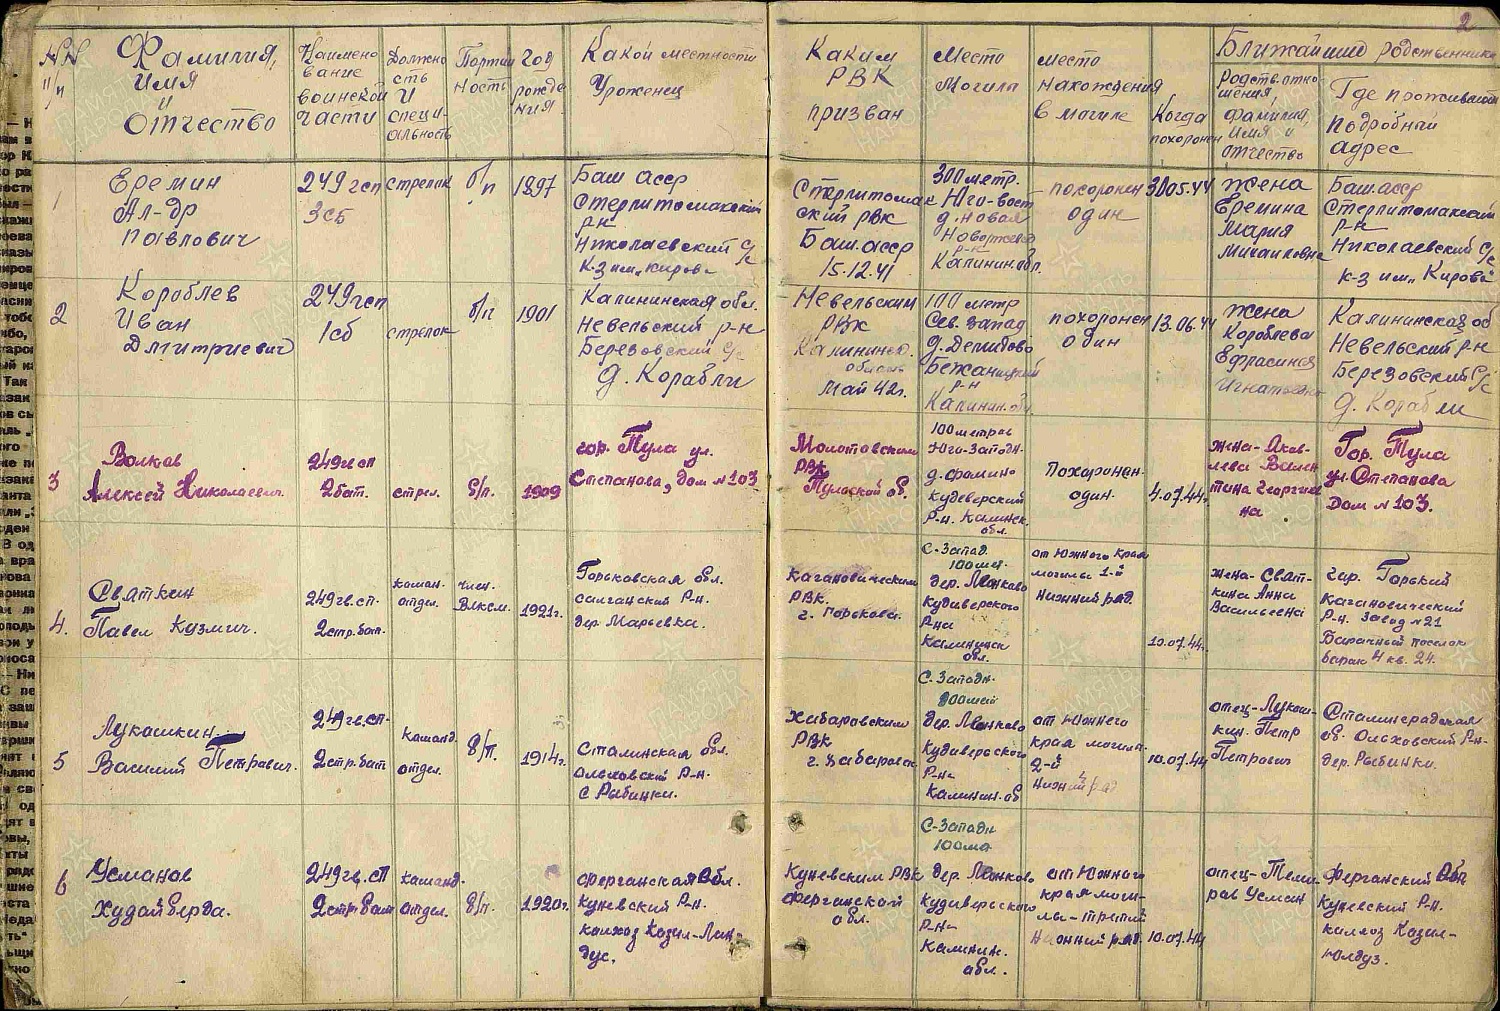 2
№№ п/п
Фамилия,
имя
и
отчество
Наимено
вание
воинской
части
Должно
сть
и
специ-
альность
Партий
ность
Год
рожде
ния
Какой местности
Уроженец
Каким
РВК
призван
Место
Могила
место
нахождения
в могиле
Когда
похоронен
Ближайший родственник
Родств. отно-
шения,
фамилия,
имя и
отчество
Где проживает
подробный
адрес
1
Еремин
Ал-др
Павлович
249 гсп
3 сб
стрелок
б/п
1897
Баш асср
Стерлитомакский
р-н
Николаевский с/с
к-з им. Кирова
Стерлитомак
ский рвк
Баш. асср
15.12.41
300 метр.
Юго-вост
д. Новая
Новоржев
р-н
Калинин. обл.
похоронен
один
30.05.44
жена
Еремина
Мария
Михайловна
Баш. асср
Стерлитомакский
р-н
Николаевский с/с
к-з им. „Кирова"
2
Кораблев
Иван
Дмитриевич
249 гсп
1 сб
стрелок
б/п
1901
Калининская обл.
Невельский р-н
Березовский с/с
д. Корабли
Невельским
РВК
Калининс.
область
Май 42 г.
100 метр
Сев. запад
д. Демидово
Бежаницкий
р-н
Калинин. обл.
похоронен
один
13.06.44
жена
Кораблева
Ефрасиния
Игнатовна
Калининская об
Невельский р-н
Березовский с/с
д. Корабли
3
Волков
Алексей Николаевич.
249 гв сп
2 бат.
стрел.
б/п.
1909
гор. Тула ул.
Степанова, дом №103
Молотовским
РВК
Тульской об.
100 метров
Юго-Западн.
д. Фомино
Кудеверский
Р-н. Калинск.
обл.
Похоронен
один.
4.07.44г.
жена-Яков-
лева Вален
тина Георгиев
на
Гор. Тула
ул. Степанова
Дом №103.
4.
Сваткин
Павел Кузмич.
249 гв. сп.
2 стр. бат.
коман.
отдел.
член.
Влксм.
1921г.
Горьковская обл.
салганский Р-н.
дер. Марьевка.
Кагановическим
РВК.
г. Горьково.
С-Запад.
100 мет.
дер. Леонково
Кудиверского
Р-на
Калининск
обл.
от Южного Края
могилы 1-й
Нижний ряд.
10.07.44.
жена-Сват-
кина Анна
Васильевна
гор. Горький
Кагановический
Р-н. Завод №21
Барачный поселок
барак 4 кв. 24.
5
Лукашкин.
Василий Петрович.
249 гв. сп.
2 стр. бат
команд.
отдел.
б/п.
1914г.
Сталинская обл.
Ольховский Р-н.
с Рыбинки.
Хабаровским
РВК
г. Хабаровск
С-Западн.
100 мет
дер. Леонково
Кудиверского
Р-на
Калинин. об
от Южнего
края могила
2-й
Нижний ряд
10.07.44
отец-Лукаш-
кин. Петр
Петрович
Сталинградская
об. Ольховский Р-н-
дер. Рыбинки.
6
Усманов
Худайберда.
249 гв. сп
2 стр бат
команд.
отдел.
б/п.
1920г.
Ферганская Обл.
Куневский Р-н.
колхоз Козил-
дус.
Куневским РВК
Ферганской
обл.
С-Западн
100 ме
дер. Леонково
Кудиверского
Р-на
Калинин.
обл.
от Южного
края моги-
лы-третий
Нижний ряд.
10.07.44
отец-
ров Усман
Ферганский Обл
Куневский Р-н.
колхоз Козил-
юлдуз.